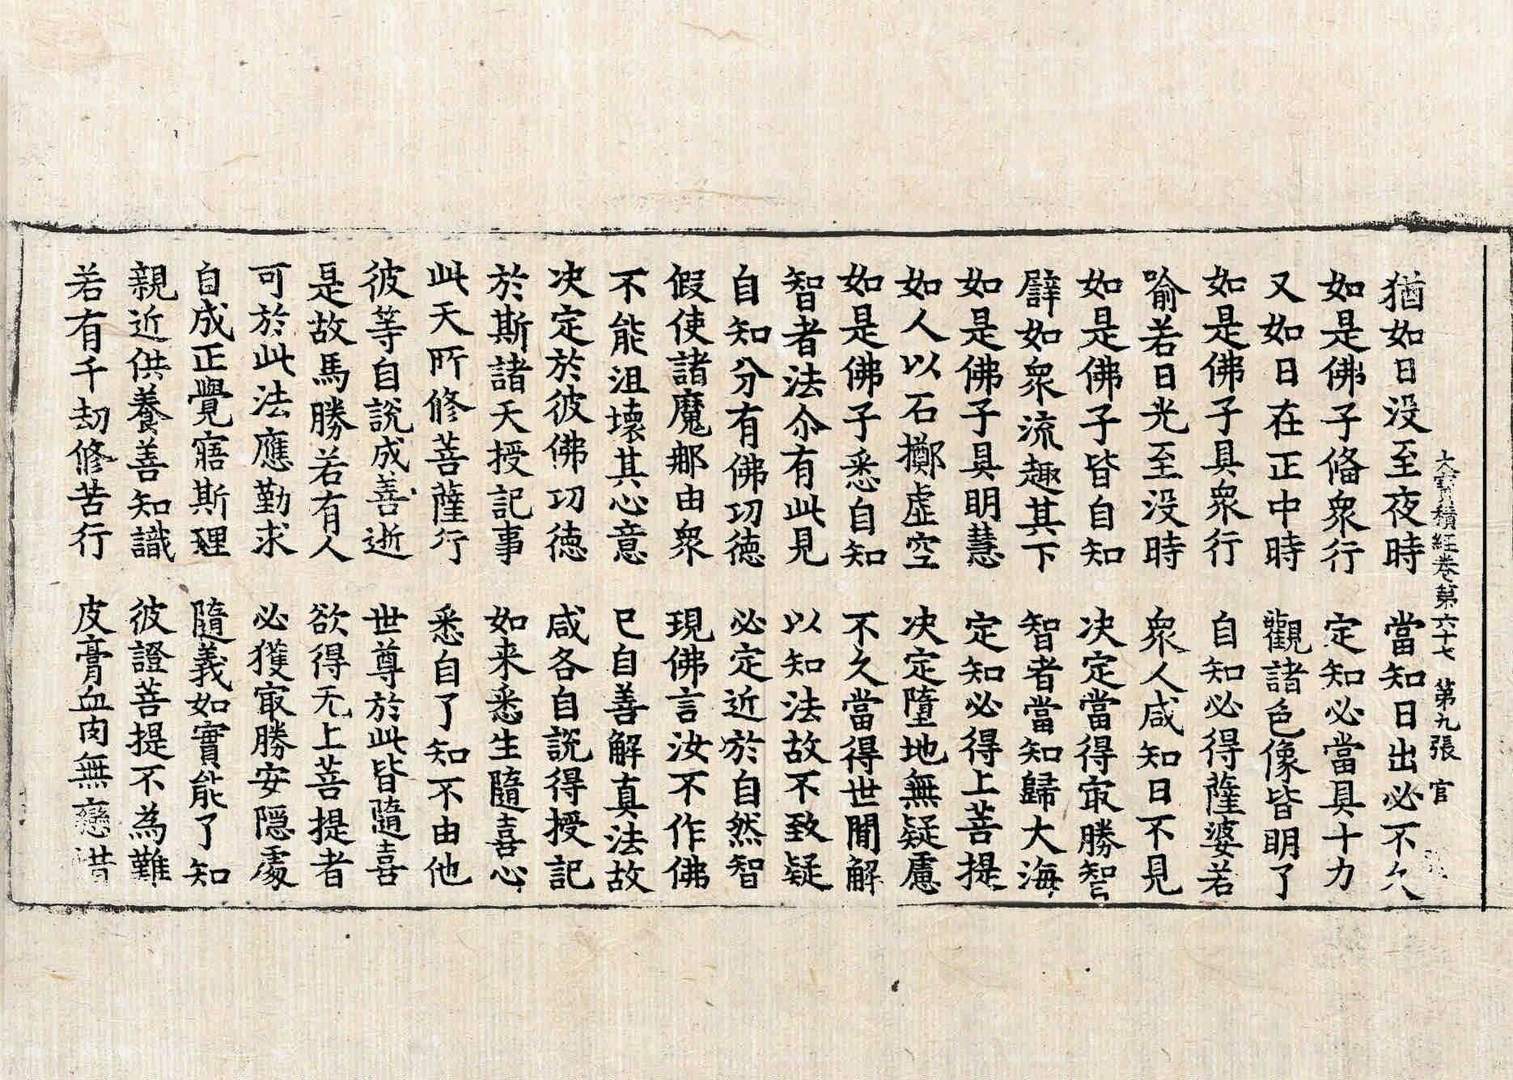 大寶積經卷第六十七 第九張 官
猶如日没至夜時 當知日出必不久
如是佛子俻衆行 定知必當具十力
又如日在正中時 觀諸色像皆明了
如是佛子具衆行 自知必得薩婆若
喻若日光至没時 衆人咸知日不見
如是佛子皆自知 决定當得㝡勝智
譬如衆流趣其下 智者當知歸大海
如是佛子具明慧 定知必得上菩提
如人以石擲虛空 决定墮地無疑慮
如是佛子悉自知 不久當得世間解
智者法尒有此見 以知法故不致疑
自知分有佛功德 必定近於自然智
假使諸魔那由衆 現佛言汝不作佛
不能沮壞其心意 已自善解真法故
决定於彼佛功德 咸各自說得授記
於斯諸天授記事 如来悉生隨喜心
此天所修菩薩行 悉自了知不由他
彼等自說成善逝 世尊於此皆隨喜
是故馬勝若有人 欲得无上菩提者
可於此法應勤求 必獲㝡勝安隱處
自成正覺寤斯理 隨義如實能了知
親近供養善知識 彼證菩提不為難
若有千劫修苦行 皮膏血肉無戀惜